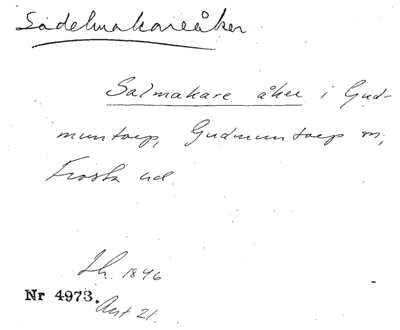 Sadelmakareåker
Salmakare åker i Gud-
muntorp, Gudmuntorp sn,
Frosta hd.
Lh. 1846
Nr 4973. Ant 21.